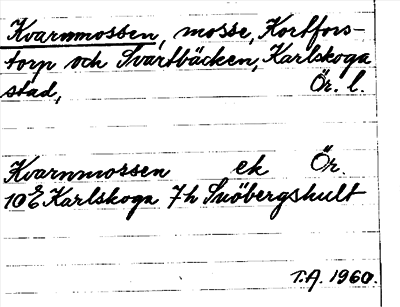 Kvarnmossen, mosse, Kortfors-
torp och Svartbäcken, Karlskoga
stad, Ör. l.
Kvarnmossen ek Ör.
10E Karlskoga 7h Snöbergshult
T.A. 1960.